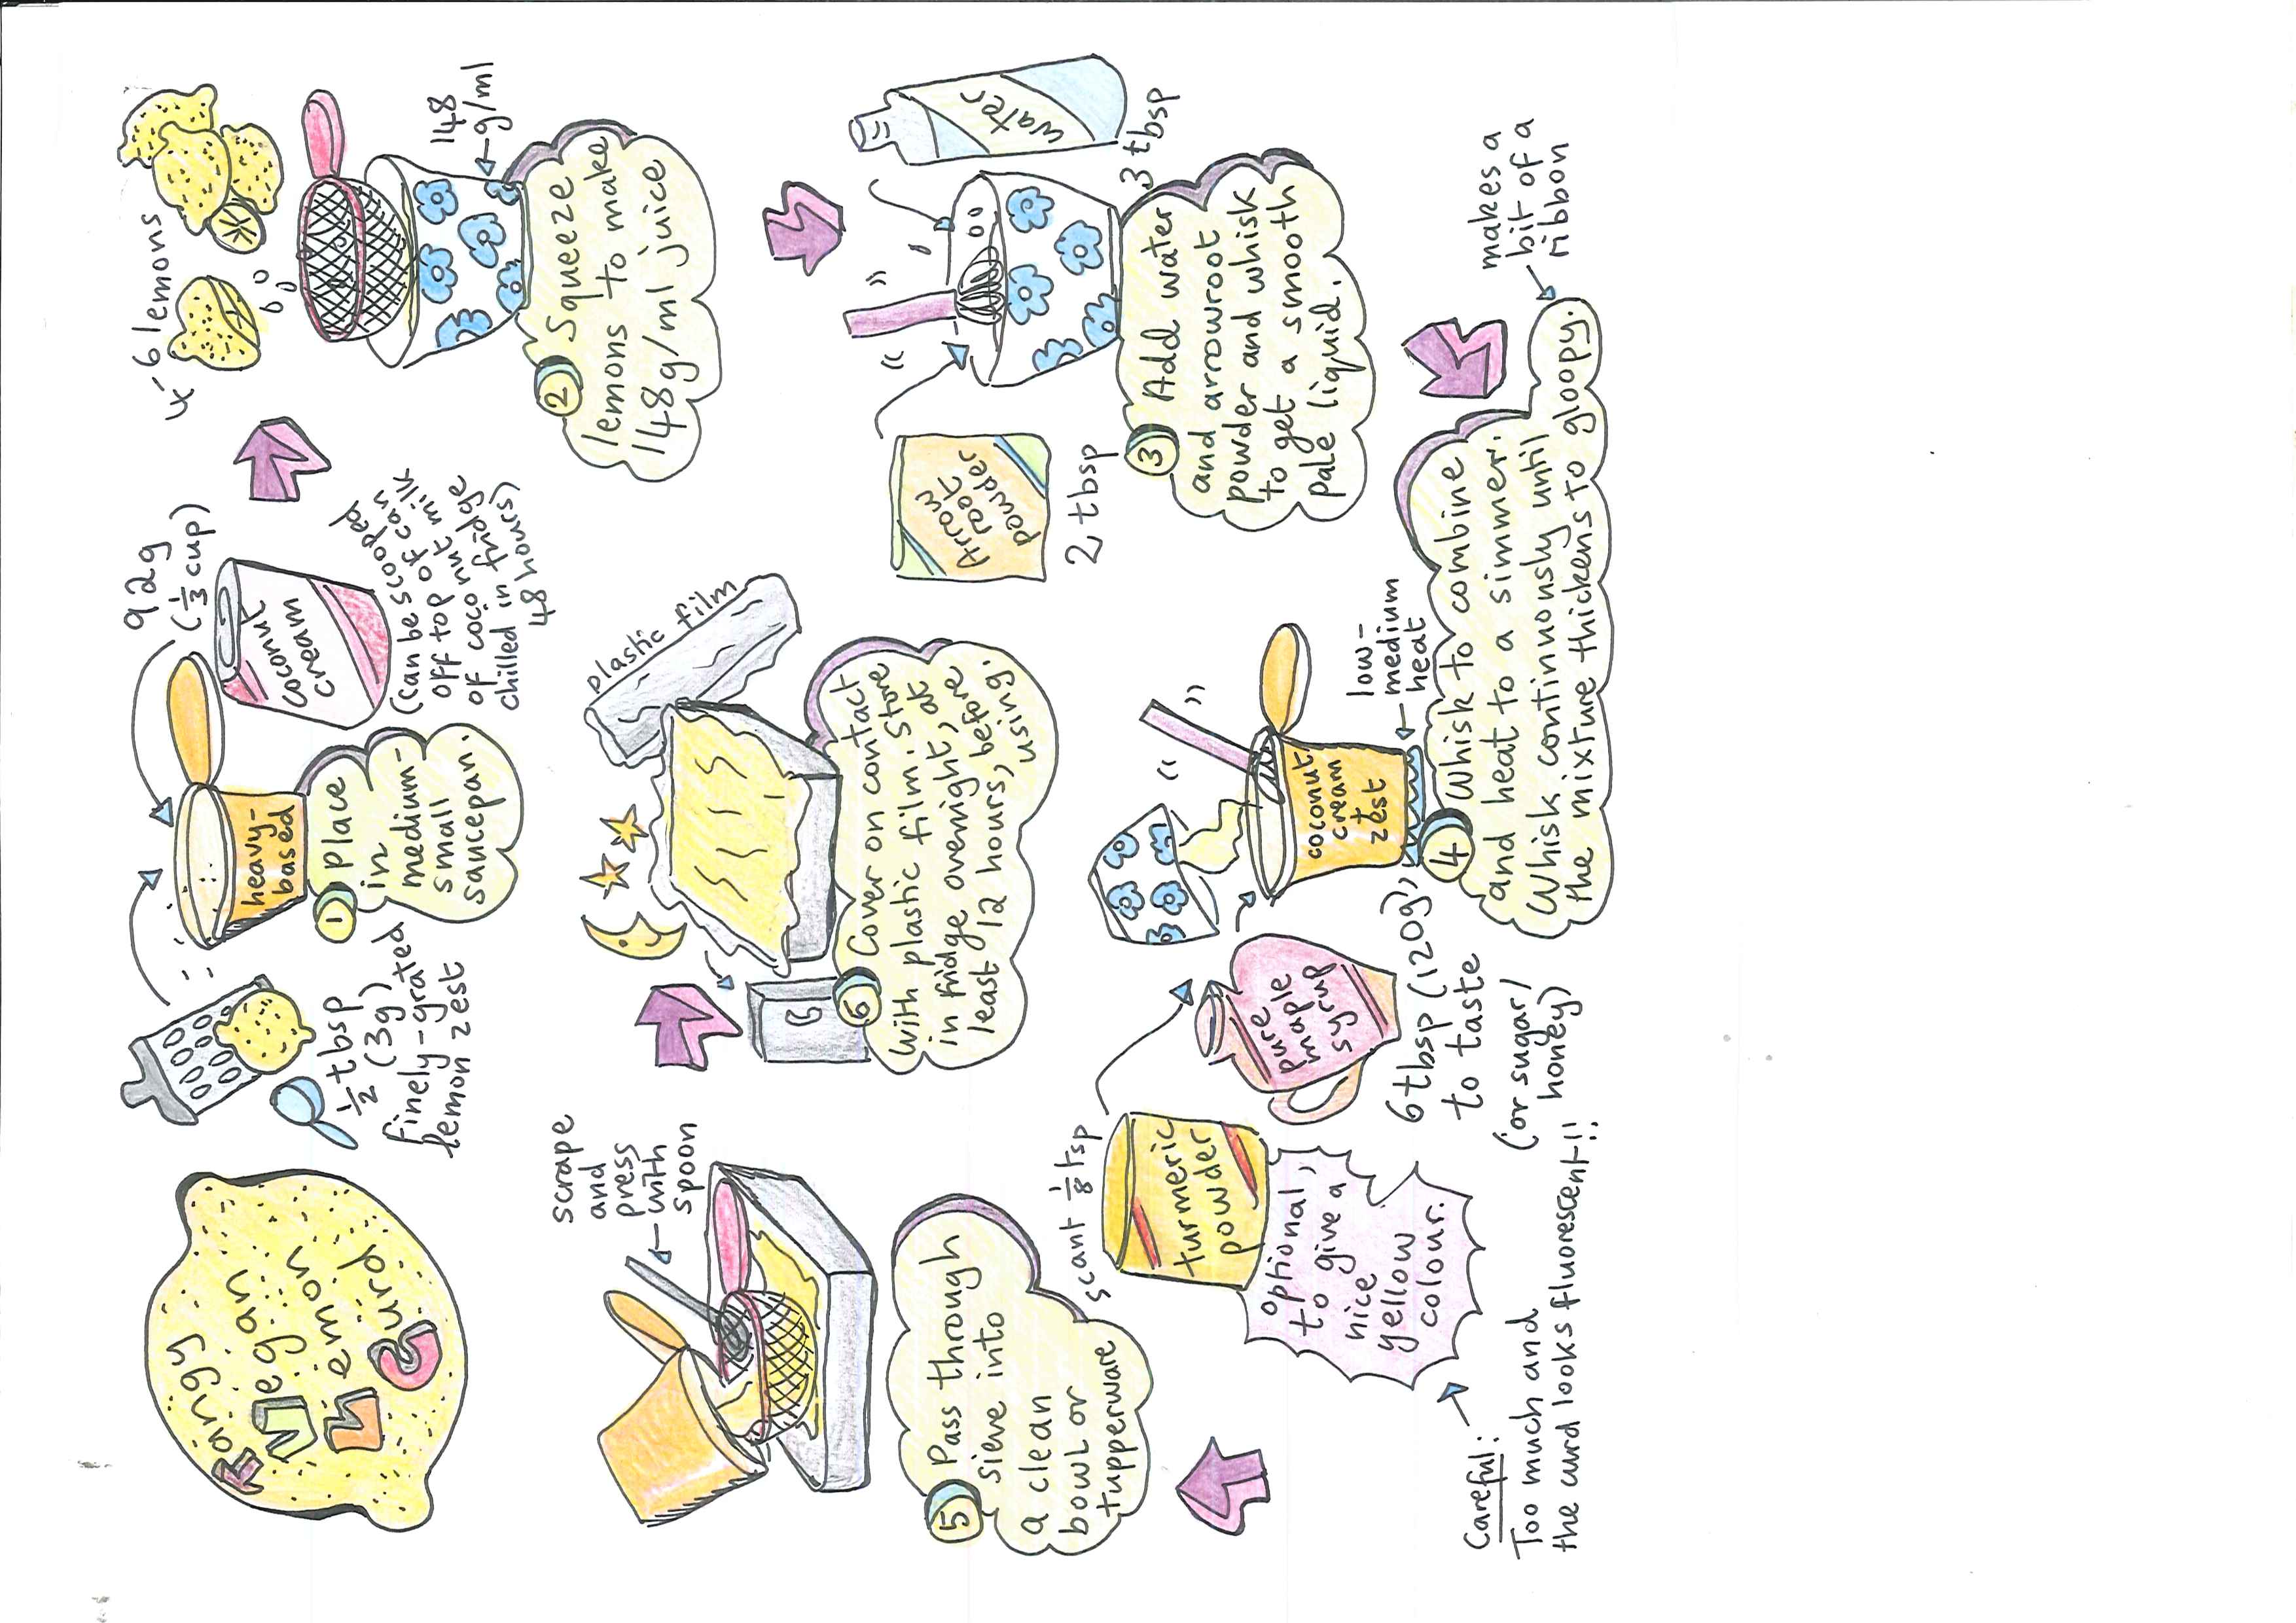 Tangy
Vegan
Lemon
Curd
1/2 tbsp
(3g)
finely-grated
lemon zest
heavy-
based
1 place
in
medium-
small
saucepan.
92g
(1/3 cup)
coconut
cream
(can be scooped
off top of can
of coconut milk
chilled in fridge
48 hours)
4-6 lemons
148
g/ml
2 Squeeze
lemons to make
148g/ml juice
Arrow
root
powder
2 tbsp
water
3 tbsp
3 Add water
and arrowroot
powder and whisk
to get a smooth
pale liquid.
makes a
bit of a
ribbon
scant 1/8 tsp
turmeric
powder
optional,
to give a
nice
yellow
colour.
Careful:
Too much and
the curd looks fluorescent!!
pure
maple
syrup
6 tbsp (120g),
to taste
(or sugar/
honey)
coconut
cream
+
zest
low-
medium
heat
4 Whisk to combine
and heat to a simmer.
Whisk continuously until
the mixture thickens to gloopy.
scrape
and
press
with
spoon
5 Pass through
sieve into
a clean
bowl or
tupperware
plastic film
6 Cover on contact
with plastic film. Store
in fridge overnight, at
least 12 hours, before
using.